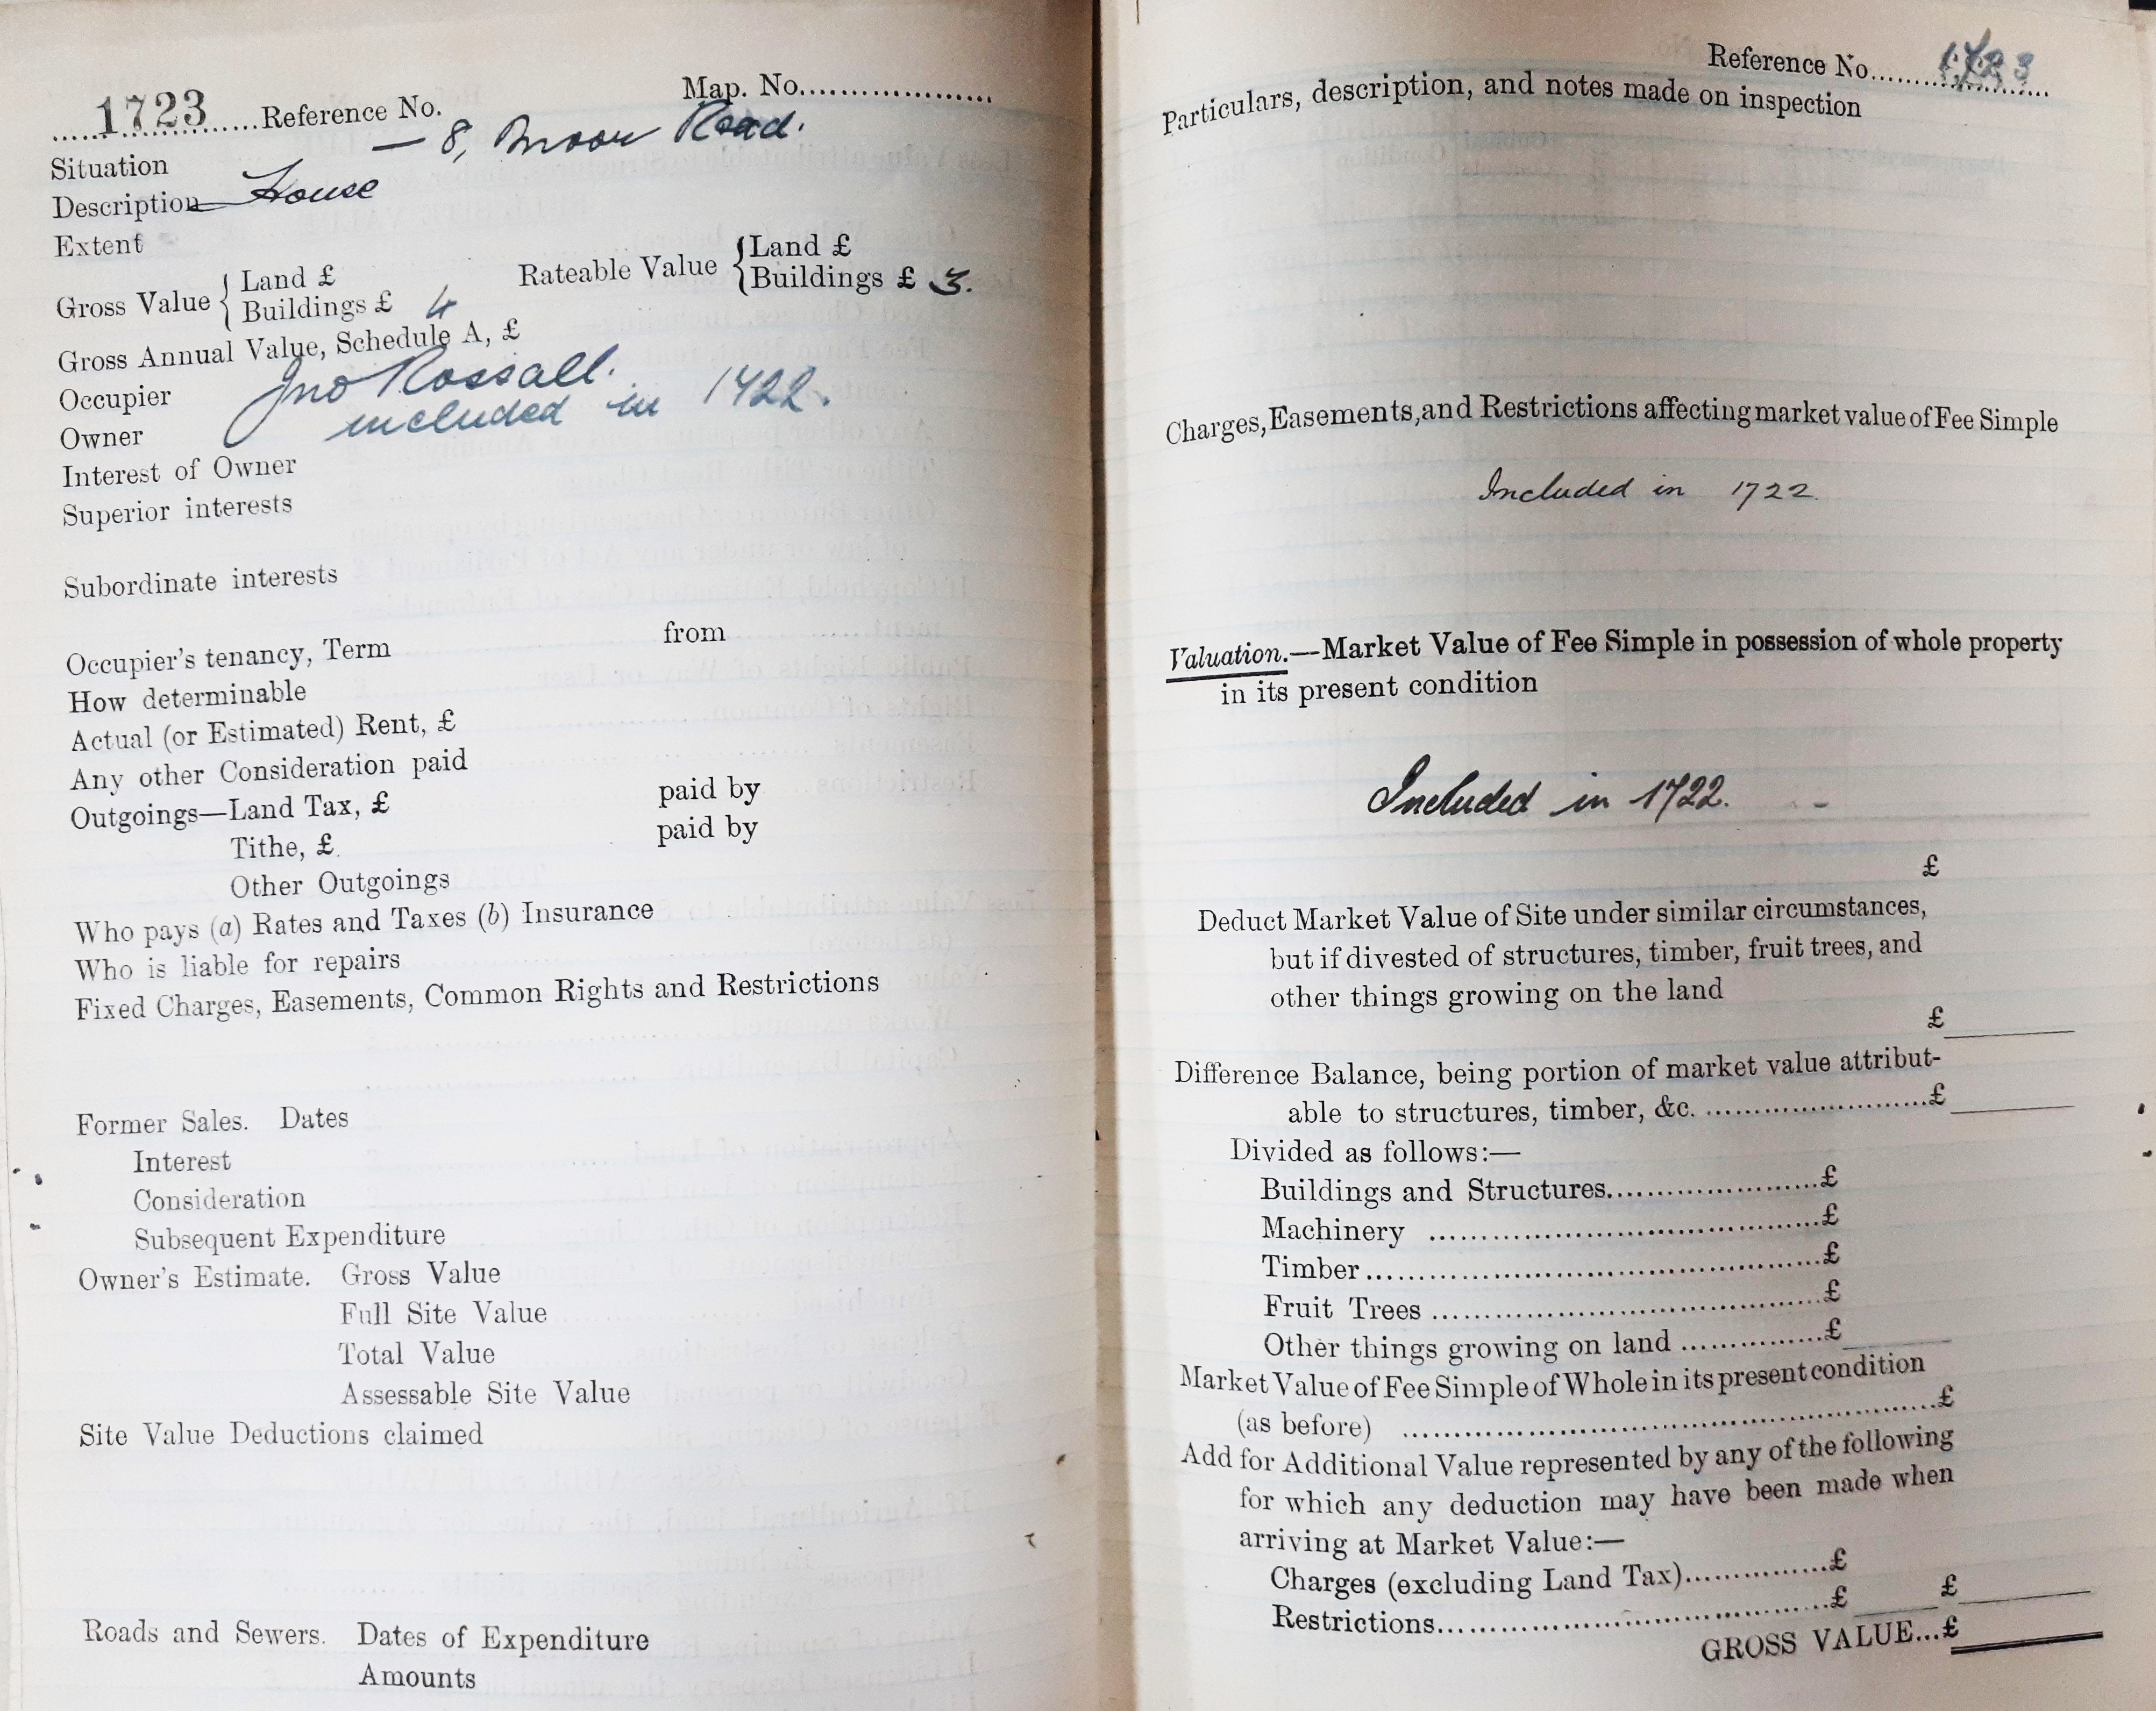 Map. No....................
.....1723.....Reference No.
Situation — 8, Moor Road.
Description — House
Extent
Gross Value { Land £
Buildings £ 4
Rateable Value { Land £
Buildings £ 3.
Gross Annual Value, Schedule A, £
Occupier Jno Rossall.
Owner included in 1722.
Interest of Owner
Superior interests
Subordinate interests
Occupier's tenancy, Term from
How determinable
Actual (or Estimated) Rent, £
Any other Consideration paid
Outgoings—Land Tax, £ paid by
Tithe, £ paid by
Other Outgoings
Who pays (a) Rates and Taxes (b) Insurance
Who is liable for repairs
Fixed Charges, Easements, Common Rights and Restrictions
Former Sales. Dates
Interest
Consideration
Subsequent Expenditure
Owner's Estimate. Gross Value
Full Site Value
Total Value
Assessable Site Value
Site Value Deductions claimed
Roads and Sewers. Dates of Expenditure
Amounts
Reference No.....1723.....
Particulars, description, and notes made on inspection
Charges, Easements, and Restrictions affecting market value of Fee Simple
Included in 1722
Valuation.—Market Value of Fee Simple in possession of whole property
in its present condition
Included in 1722.
£
Deduct Market Value of Site under similar circumstances,
but if divested of structures, timber, fruit trees, and
other things growing on the land
£
Difference Balance, being portion of market value attribut-
able to structures, timber, &c. .........................£
Divided as follows:—
Buildings and Structures......................£
Machinery ......................................£
Timber.............................................£
Fruit Trees ......................................£
Other things growing on land ..............£
Market Value of Fee Simple of Whole in its present condition
(as before) ......................................................£
Add for Additional Value represented by any of the following
for which any deduction may have been made when
arriving at Market Value:—
Charges (excluding Land Tax)..............£
Restrictions.......................................£ £
GROSS VALUE...£